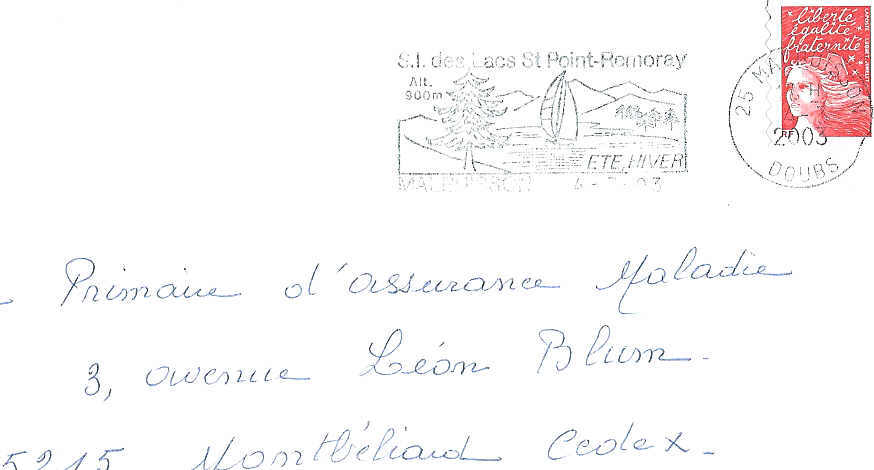 liberté
égalité
fraternité
S.I. des Lacs St Point-Remoray
Alt.
900m
ETE, HIVER
25
2003
DOUBS
Primaire d'assurance Maladie
3, avenue Léon Blum.
5215 Montbéliard Cedex.